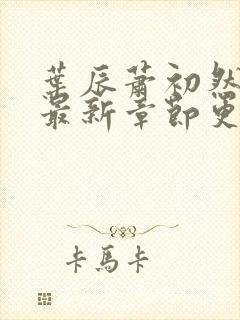 葉辰蕭初然
最新章節更
卡馬卡